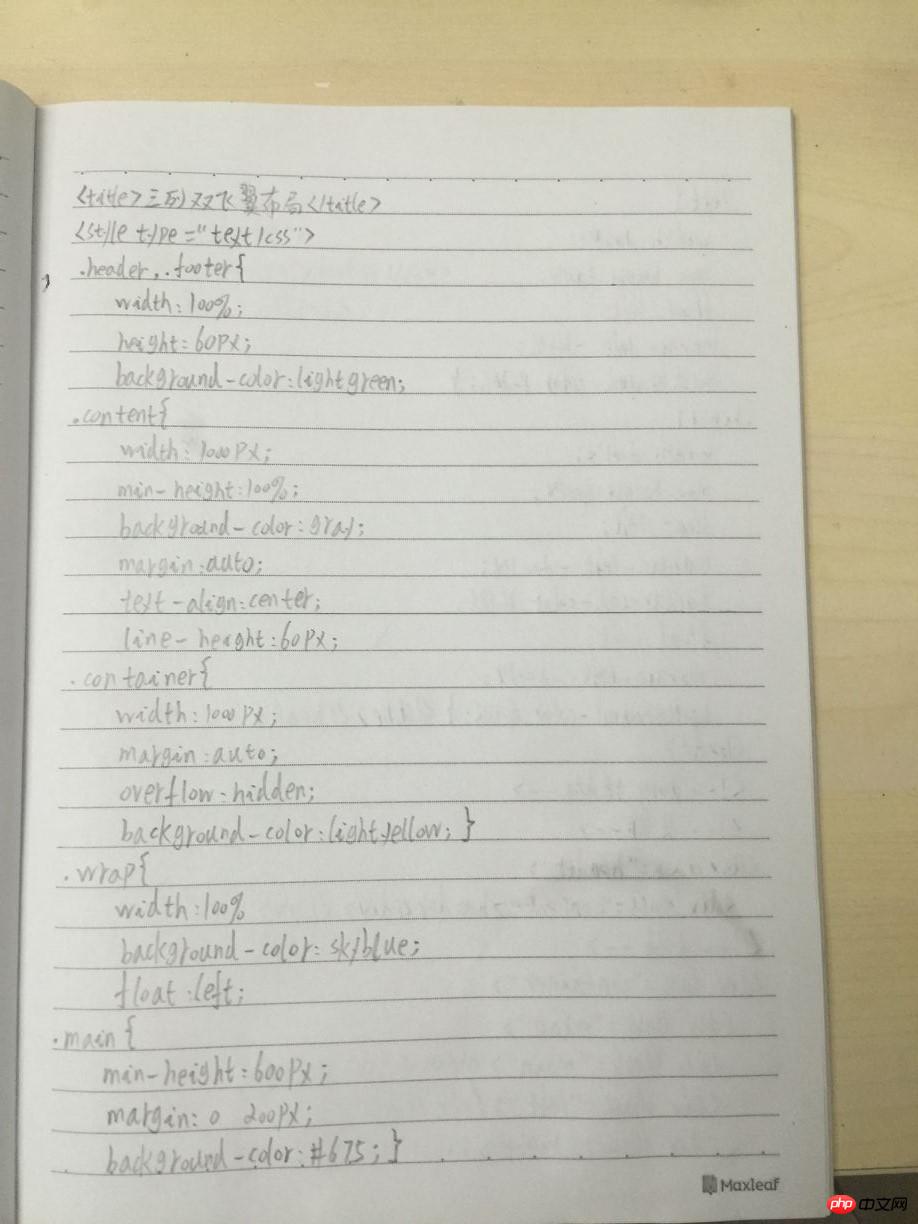 <title>三列双飞翼布局</title>
<style type="text/css">
.header,.footer{
width:100%;
height:60px;
background-color:lightgreen;
.content{
width:1000px;
min-height:100%;
background-color:gray;
margin:auto;
text-align:center;
line-height:60px;
.container{
width:1000px;
margin:auto;
overflow:hidden;
background-color:lightyellow;}
.wrap{
width:100%
background-color:skyblue;
float:left;
.main{
min-height:600px;
margin:0 200px;
background-color:#675;}
Maxleaf
php 中文网